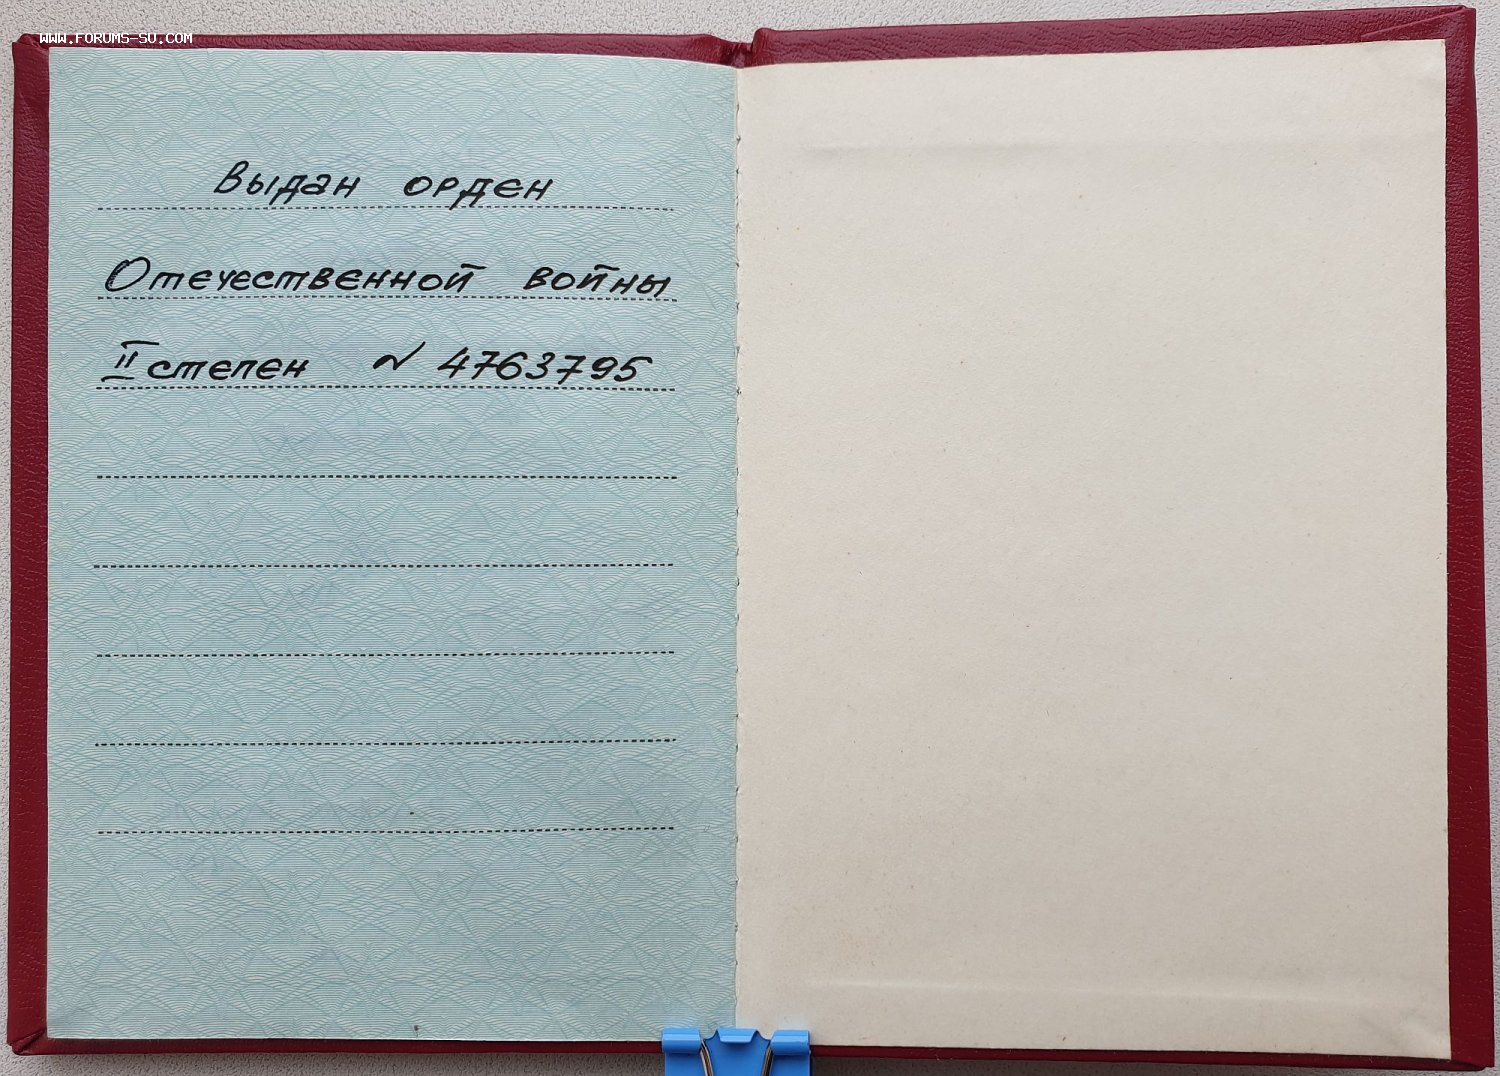 WWW.FORUMS-SU.COM
Выдан орден
Отечественной войны
II степен № 4763795